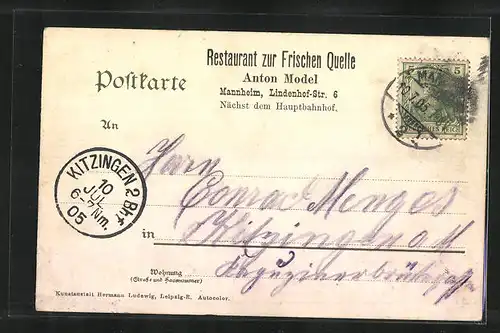 Restaurant zur Frischen Quelle
Anton Model
Mannheim, Lindenhof-Str. 6
Nächst dem Hauptbahnhof.
Postkarte
5 5
An
KITZINGEN 2 Bhf
10
JUL
6-7 Nm.
05
Herrn
Conrad Menges
in Kitzingen
Wohnung
(Straße und Hausnummer)
Kunstanstalt Hermann Ludewig, Leipzig-R. Autocolor.